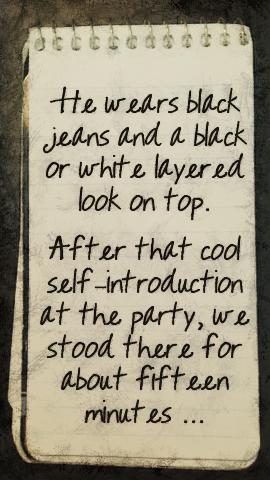 He wears black
jeans and a black
or white layered
look on top.
After that cool
self-introduction
at the party, we
stood there for
about fifteen
minutes ...